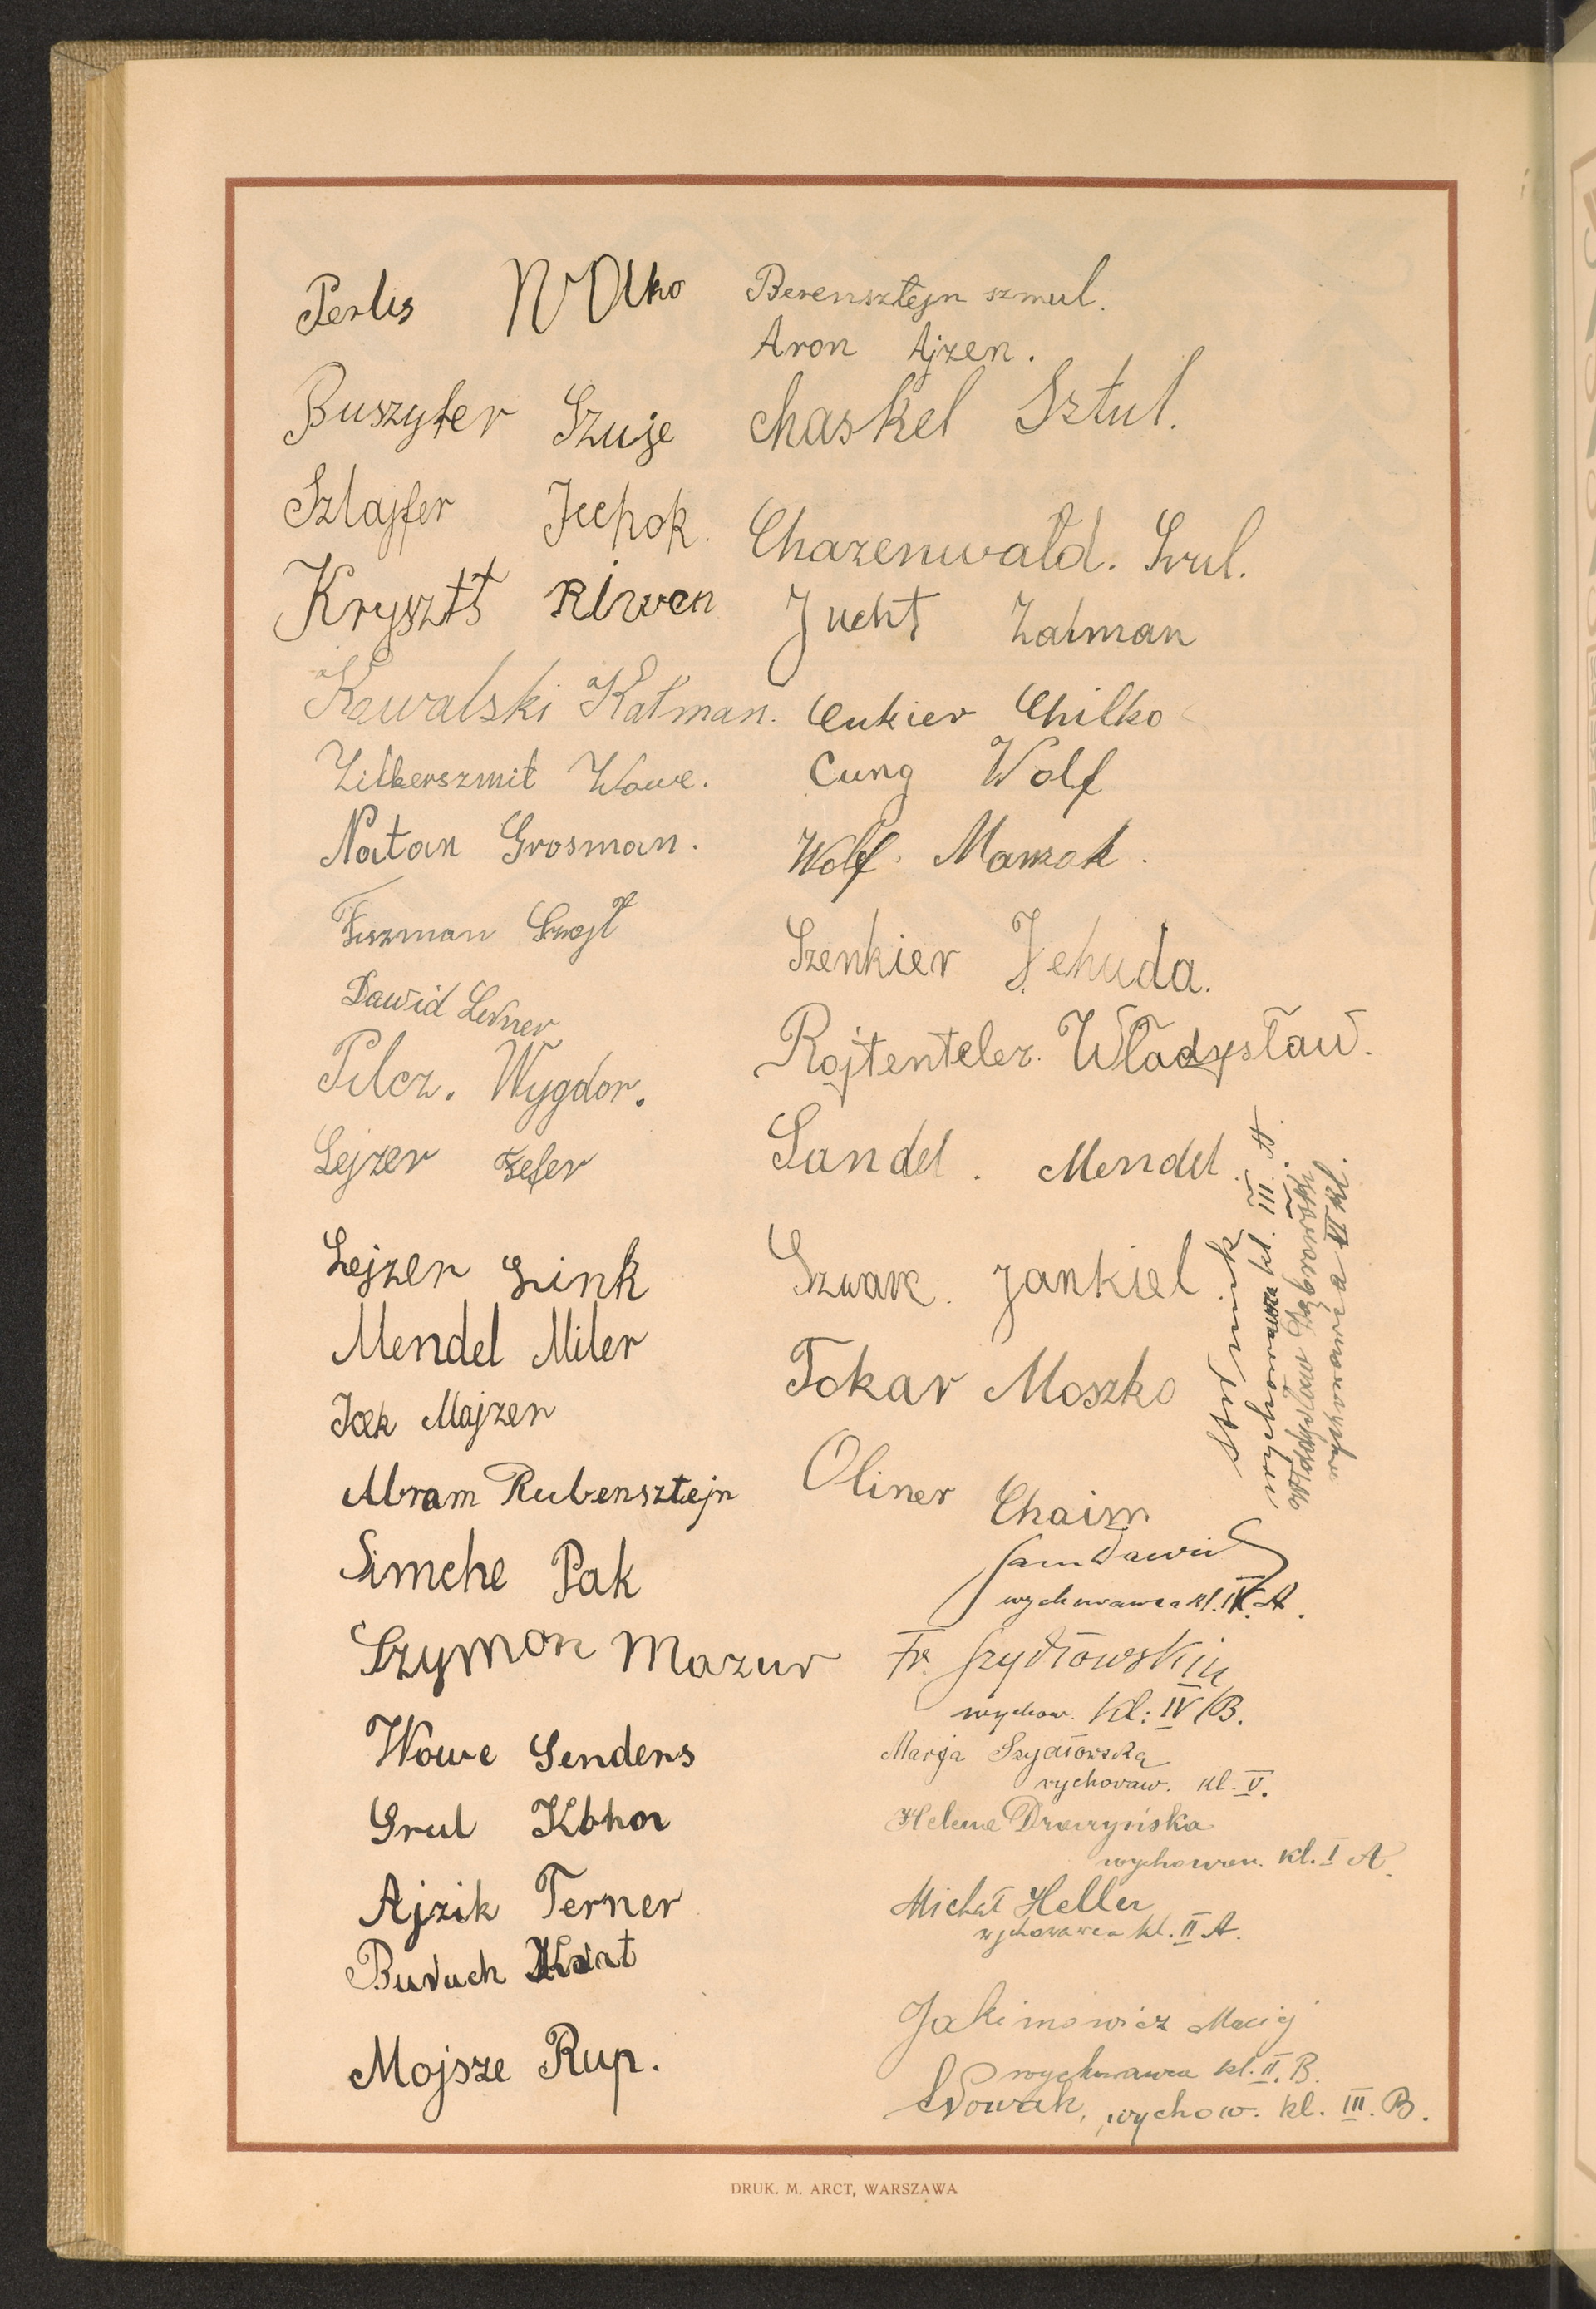 Perlis Wolko
Buszyfer Szuje
Szlajfer Icchok.
Krysztł Riwen
Kawalski Kałman.
Zilberszmit Wowe.
Natan Grosman.
Fiszman
Dawid Lerner
Pilcz. Wygdor.
Lejzer Zefer
Lejzer Link
Mendel Miler
Icek Majzer
Abram Rubensztejn
Simche Pak
Szymon Mazur
Wowe Genders
Srul
Ajzik Terner
Buruch
Mojsze Rup.
Berensztejn szmul.
Aron Ajzen.
Chaskel Sztul.
Chazenwald. Srul.
Jucht Zalman
Cukier Chilko
Cung Wolf
Wolf. Marzok.
Szenkier Jehuda.
Rojtenteler. Władysław.
Sandel. Mendel.
Szwarc. Jankiel.
Tokar Moszko
Oliner Chaim
Sam Dawid
wychowawca kl. IV. A.
Fr. Szydłowski
wychow. kl: IV B.
Marja Szydłowska
wychowaw. kl. V.
Helena Draczyńska
wychowaw. kl. I A.
Michał Heller
wychowawca kl. II A.
Jakimowicz Maciej
wychowawca kl. II. B.
Nowak, wychow. kl. III. B.
wychowawca kl. III. A.
wychowawca kl. II
DRUK. M. ARCT, WARSZAWA